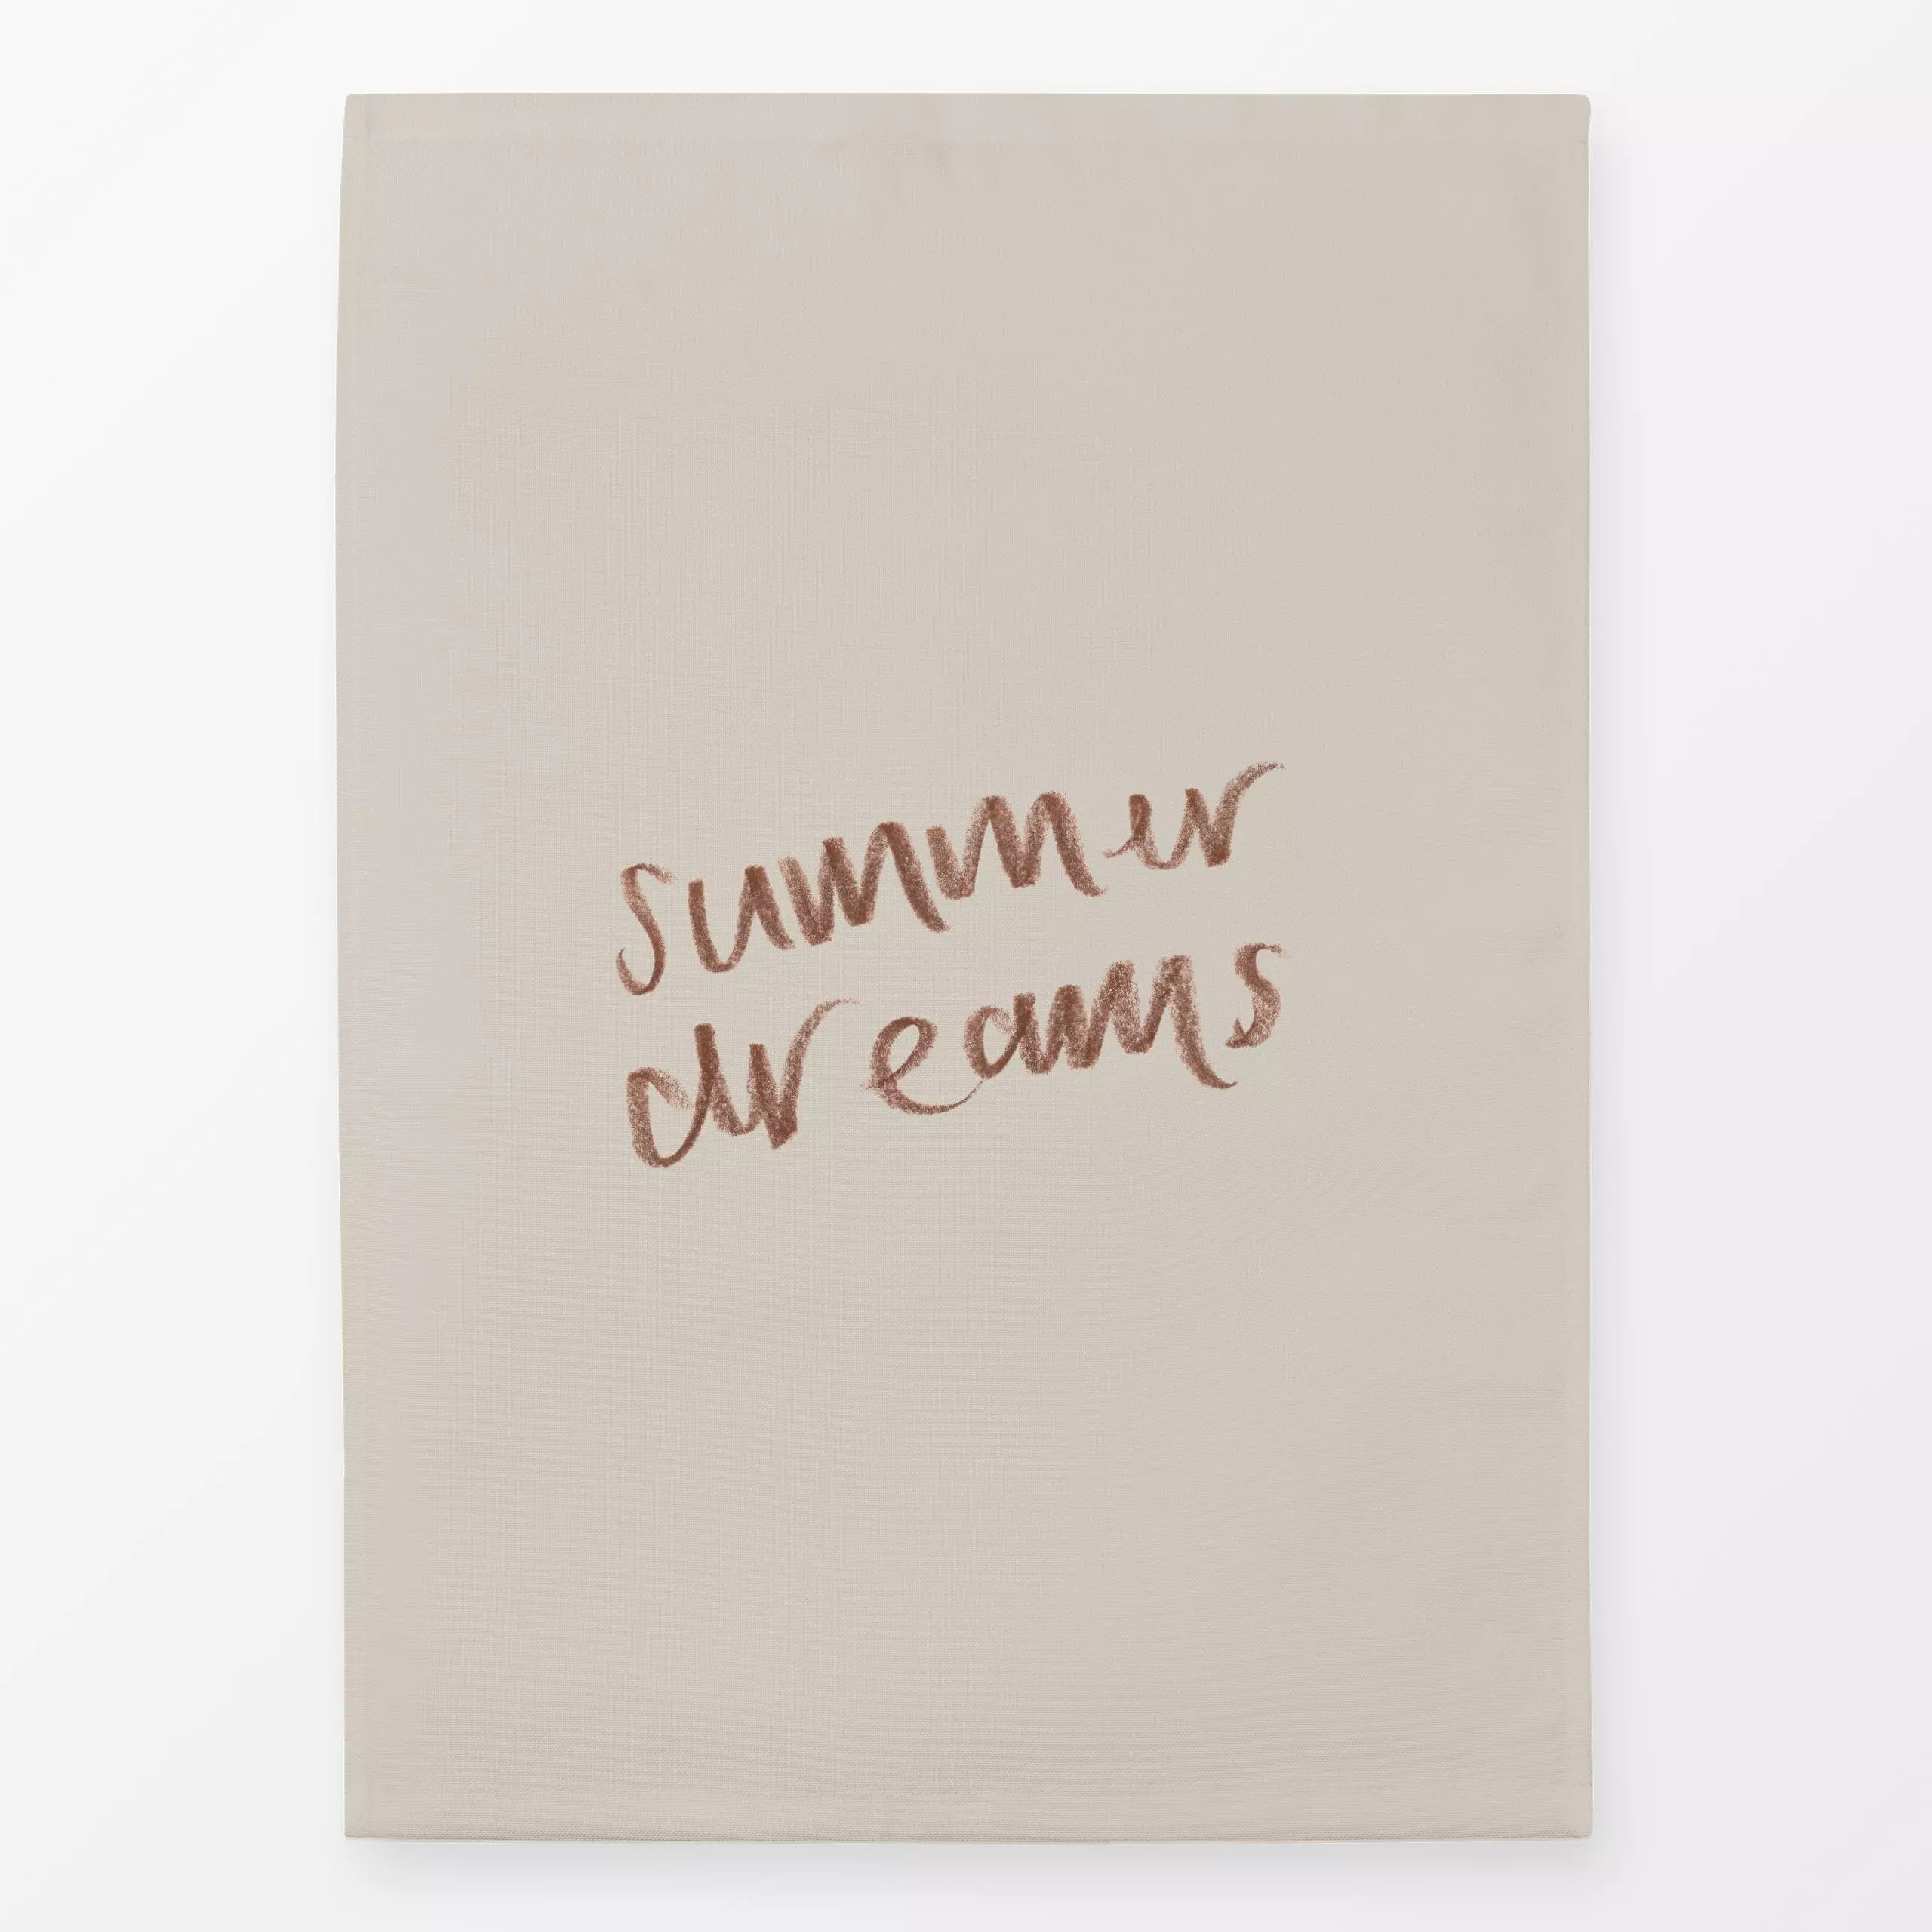 summer
dreams